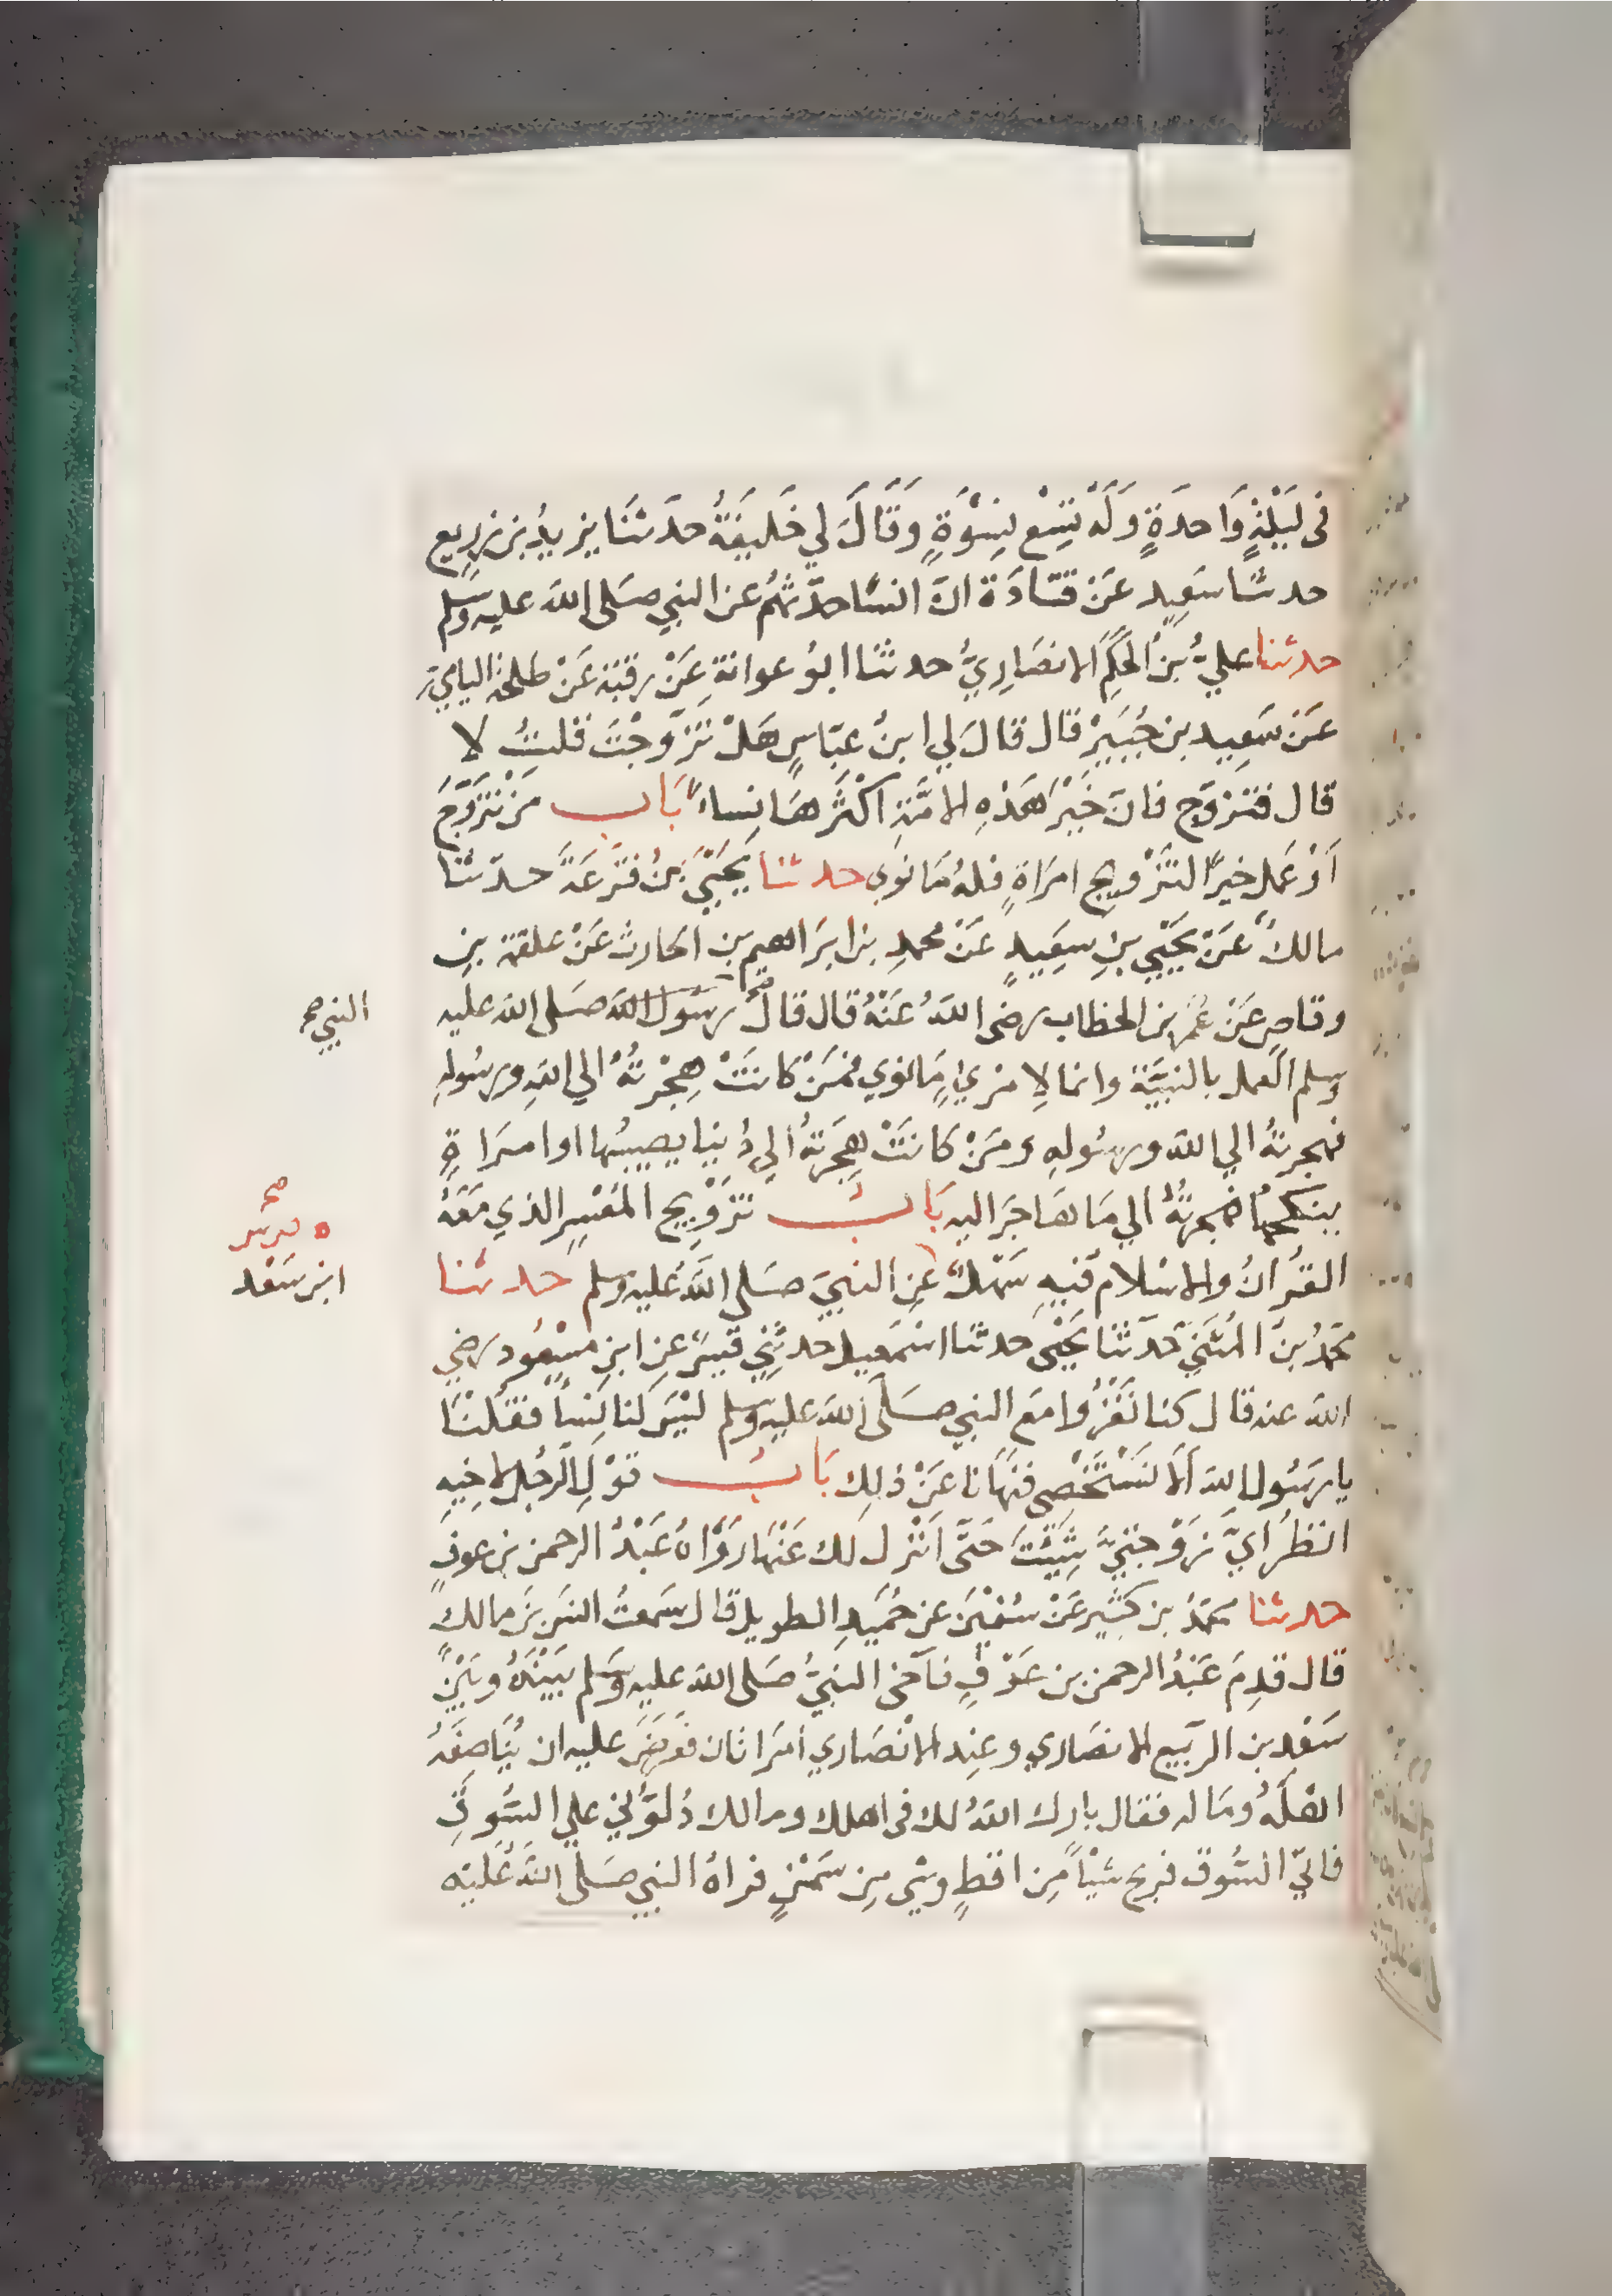 فى لَيْلَةٍ وَاحدَةٍ وَلَه تِسْع نِسْوَةٍ وَقَالَ لي خَليفَةُ حدَثنَا يزيدُ بن زريع
حدثنا سَعِيد عَنْ قتَادَة انَ انسًا حدّثهُم عن النبي صَلى الله عليه وسلم
حدثنا عليُّ بنُ الحَكَمِ الانصَارِيُّ حدثنا ابوُ عوانة عَنْ رقبة عَنْ طلحة اليامي
عَنْ سَعِيد بن جُبَيْر قال قالَ لي ابنُ عبّاسٍ هَلْ تَزَوَّجْتَ قلتُ لا
قال فتزوّج فانَ خَيْرَ هَذهِ الامَّة اكْثرُهَا نِساءً بَاب مَنْ تَزَوَّجَ
أوْ عَمل خيرًا لتَزْويج امرَاةٍ فلهُ مَا نوَي حدثنا يَحْيَي بنُ قَزعَةَ حدّثنا
مالكٌ عَنْ يَحْيَي بنِ سَعِيدٍ عَنْ محمدِ بن ابرَاهيم بن الحارث عَنْ علقمة بنِ
وقاصٍ عَنْ عُمَر بن الخطاب رضى اللهُ عَنْهُ قال قال رسُول الله صَلى الله عليه
النبي صح
وسلم العَمل بالنيَّة وانما لِامرئٍ مَا نوَي فمَنْ كانَتْ هِجْرتُهُ الي اللهِ ورسُولهِ
فهجرتهُ الي الله ورسُولهِ ومَنْ كانَتْ هِجَرتهُ الي دُنيا يصيبُها او امرَاةٍ
ينكحُها فهجرتُهُ الي مَا هَاجَرَ اليه بَابُ تزَوْيج المُعْسِر الذي مَعَهُ
صح
القُرْانُ والاسْلام فيهِ سَهْلٌ عَنِ النبيّ صَلى اللهُ عَليه وسلم حدثنا
ابن سَعْد
محمدُ بنُ المُثَنَّي حدَثنا يَحْيَى حدثنا اسْمَعِيل حدثَني قيسٌ عن ابنِ مسْعُود رضي
الله عنه قال كنا نَغْزُوا مَع النبي صَلى الله عليه وسلم ليْسَ لنا نِسَاً فقُلنَا
يا رسُول الله ألا نَسْتَخْصِى فنَهَانا عَنْ ذلِك بَابُ قوْلِ الرَّجُل لاخيهِ
انظُر ايَّ زوْجتيَّ شِئْتَ حَتَّى انْزل لك عَنْها رَوَاهُ عَبْدُ الرحمن بن عوفٍ
حدثنا محمّدُ بن كَثِير عَنْ سُفينَ عن حُمَيدِ الطويل قال سَمعتُ انسَ بنَ مالك
قال قدِمَ عَبْدُ الرحمن بن عَوْفٍ فآخى النبيُّ صَلى الله عليه وسَلم بَيْنَهُ وبَيْنَ
سَعْد بن الرَّبيع الانصَاري وعِند الانْصَاري امرَاتان فعَرَضَ عليه ان يُنَاصِفَهُ
اهْلَهُ ومَاله فقال بارك اللهُ لك فى اهلك ومالك دُلوُّني علي السُّوقِ
فاتي السُّوق فربح شَيْاً مِن اقطٍ وشى مِن سَمْنٍ فراهُ النبي صَلى اللهُ عَليْه